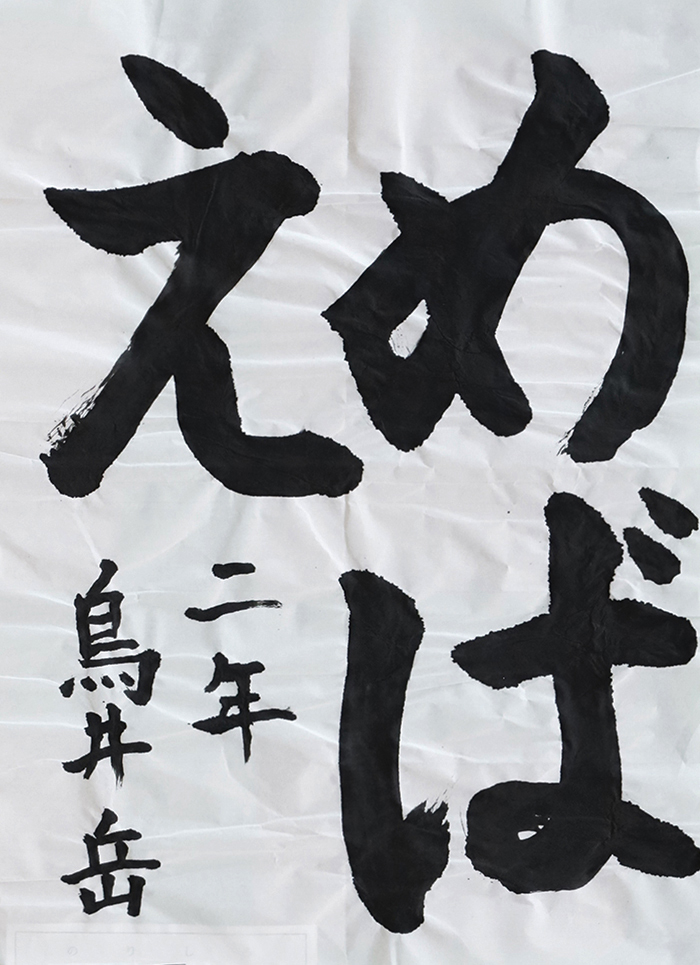 めば
え
二年
鳥井岳